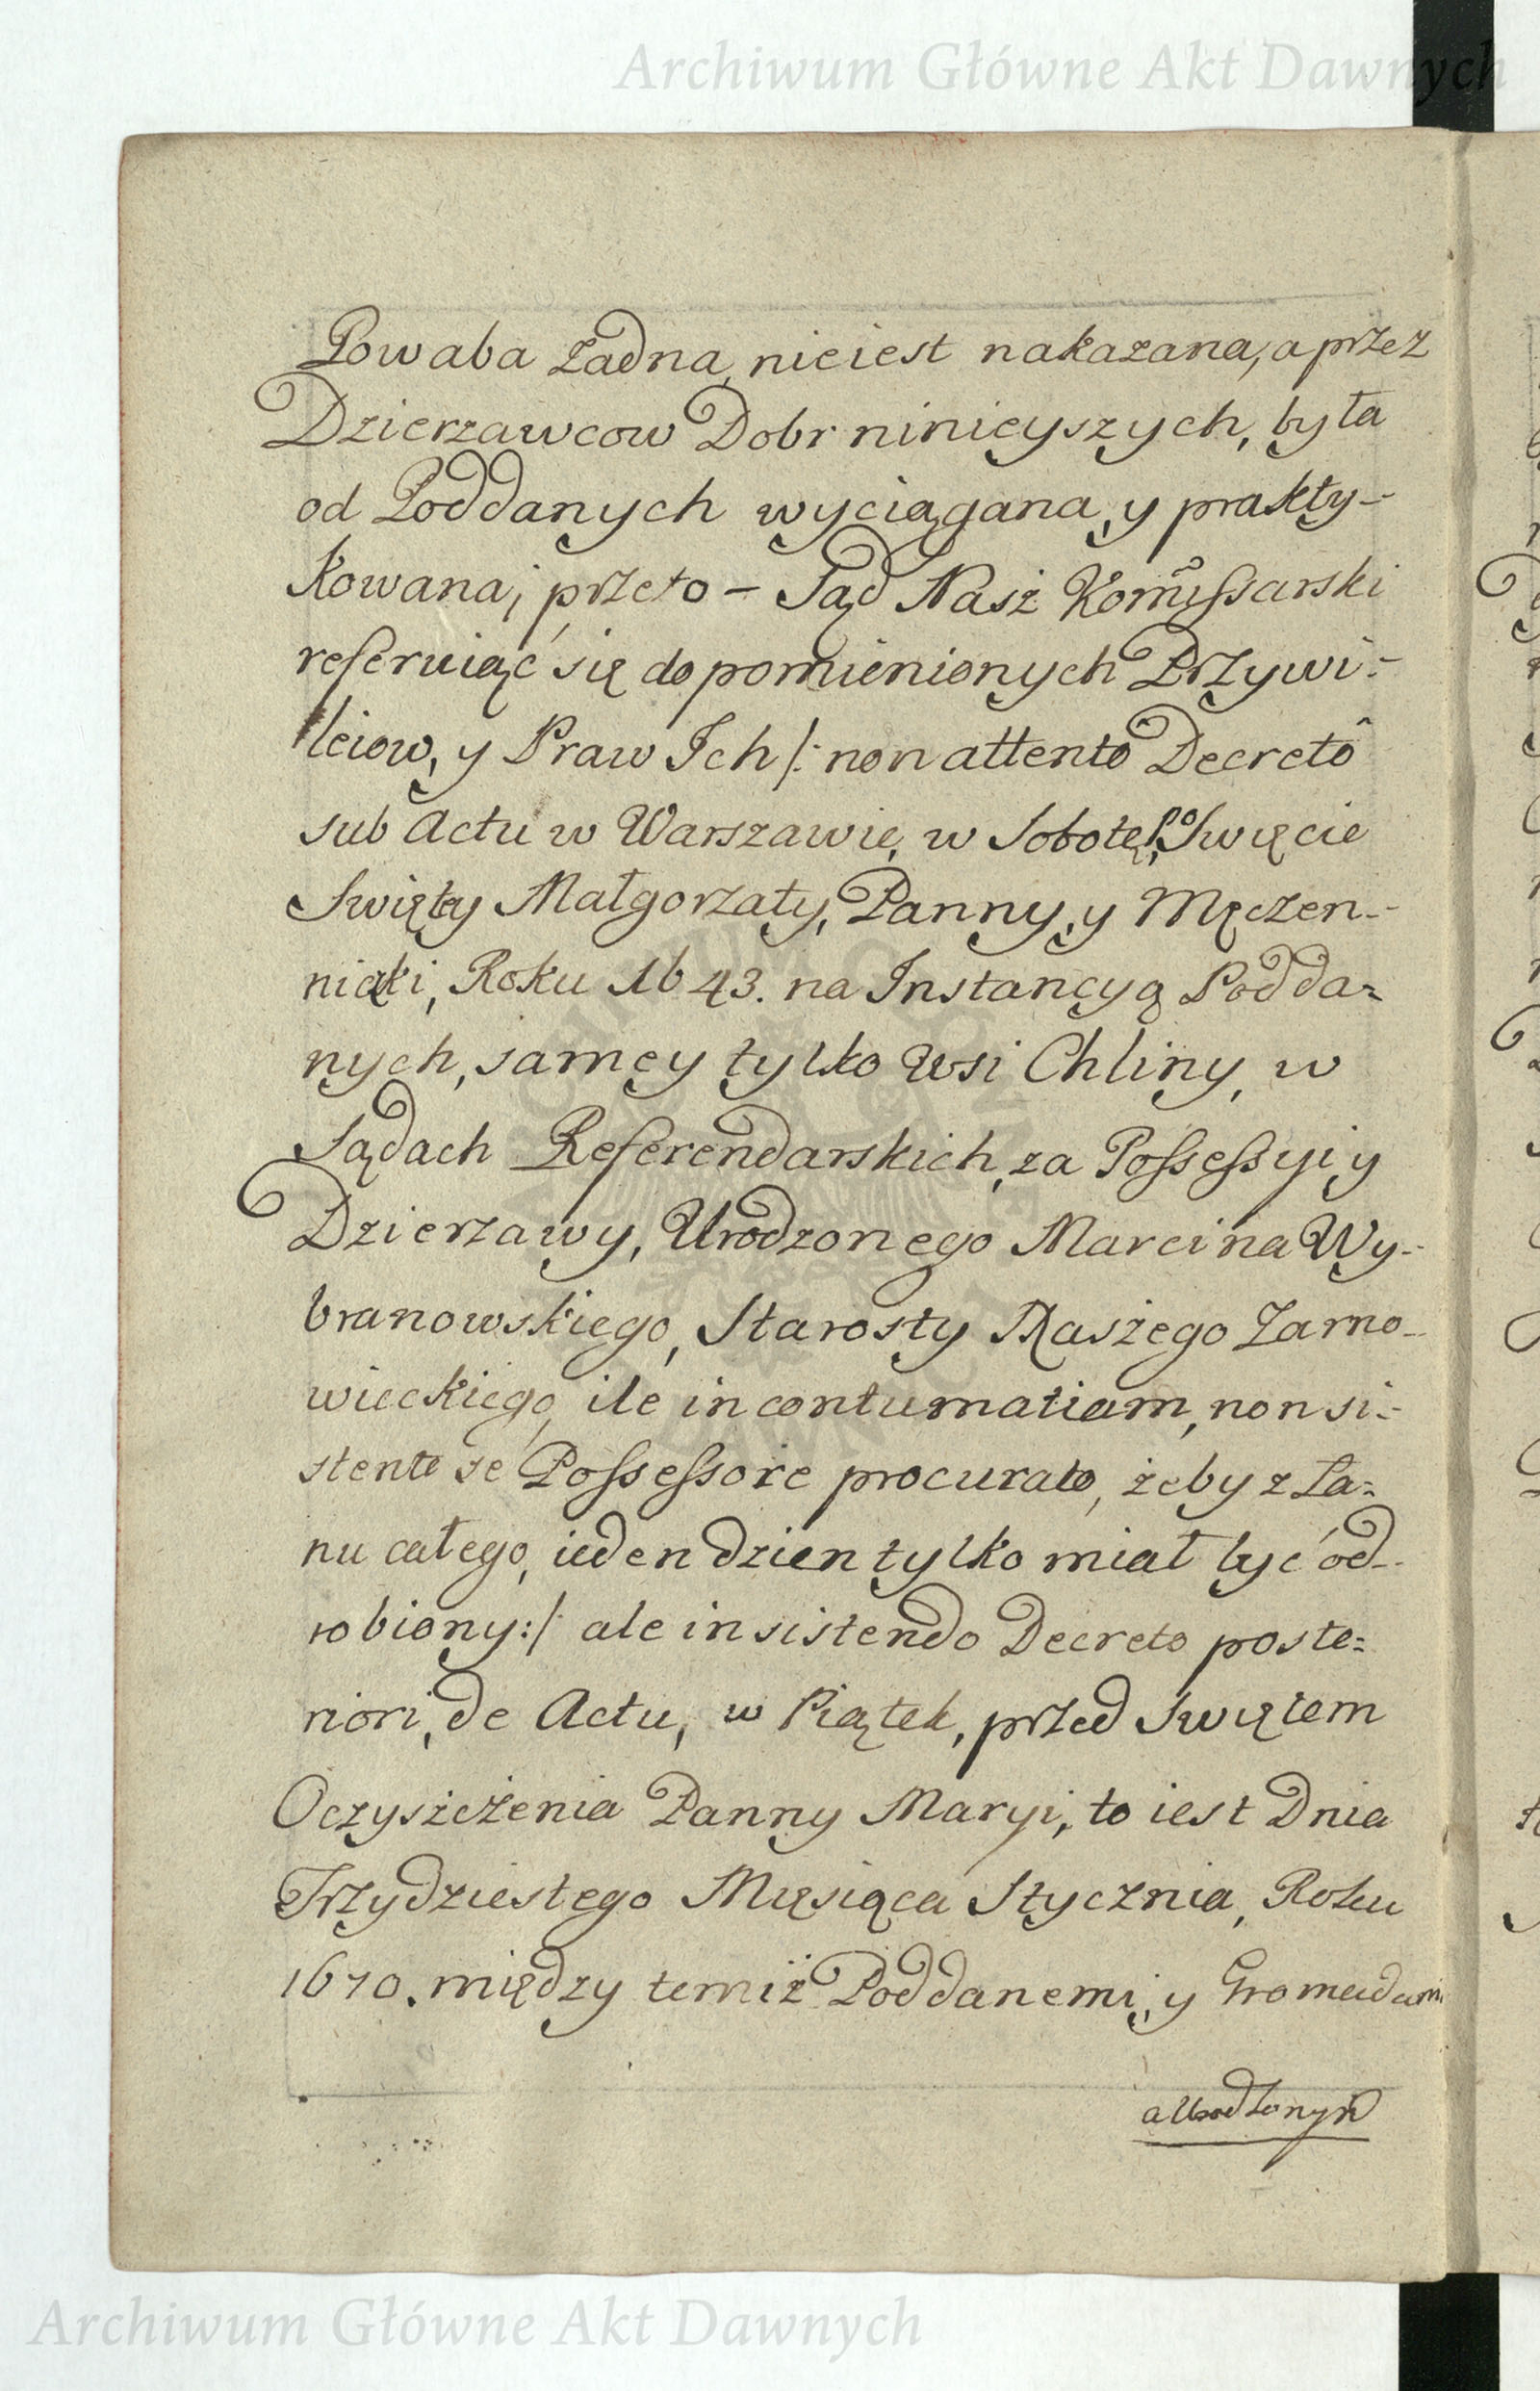 Archiwum Główne Akt Dawnych
Powaba żadna, nieiest nakazana, a przez
Dzierzawcow Dobr ninieyszych, była
od Poddanych wyciągana, y prakty-
kowana; przeto - Sąd Nasz Kom̃issarski
referuiąc się do pomienionych Przywi-
leiow, y Praw Ich /: non attentô Decretô
sub Actu w Warszawie, w Sobotę po Swięcie
Swięty Małgorzaty, Panny, y Męczen-
niczki, Roku 1643. na Instancyą Podda-
nych, samey tylko Wsi Chliny, w
Sądach Referendarskich, za Possessyi y
Dzierzawy, Urodzonego Marcina Wy-
branowskiego, Starosty Naszego Zarno-
wieckiego, ile in contumatiam, non si-
stente se Possessore procurato, żeby z Ła-
nu całego, ieden dzien tylko miał byc od-
robiony:/ ale insistendo Decreto poste-
riori, de Actu, w Piątek, przed Swiętem
Oczyszczenia Panny Maryi, to iest Dnia
Trzydziestego Męsiąca Stycznia, Roku
1670. między temiż Poddanemi, y Gromadami
a Urodzonym
Archiwum Główne Akt Dawnych